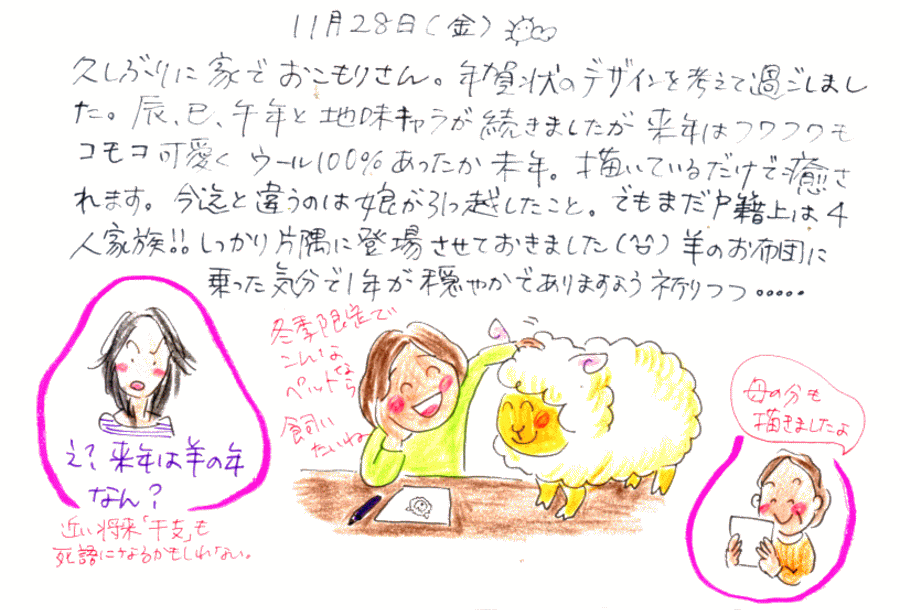 11月28日(金)
久しぶりに家でおこもりさん。年賀状のデザインを考えて過ごしまし
た。辰、巳、午年と地味キャラが続きましたが来年はフワフワモ
コモコ可愛くウール100%あったか未年。描いているだけで癒さ
れます。今迄と違うのは娘が引っ越したこと。でもまだ戸籍上は4
人家族!!しっかり片隅に登場させておきました(^^)羊のお布団に
乗った気分で1年が穏やかでありますよう祈りつつ・・・・・
え?来年は羊の年
なん?
近い将来「干支」も
死語になるかもしれない。
冬季限定で
こんな
ペットなら
飼い
たいね
母の分も
描きましたよ